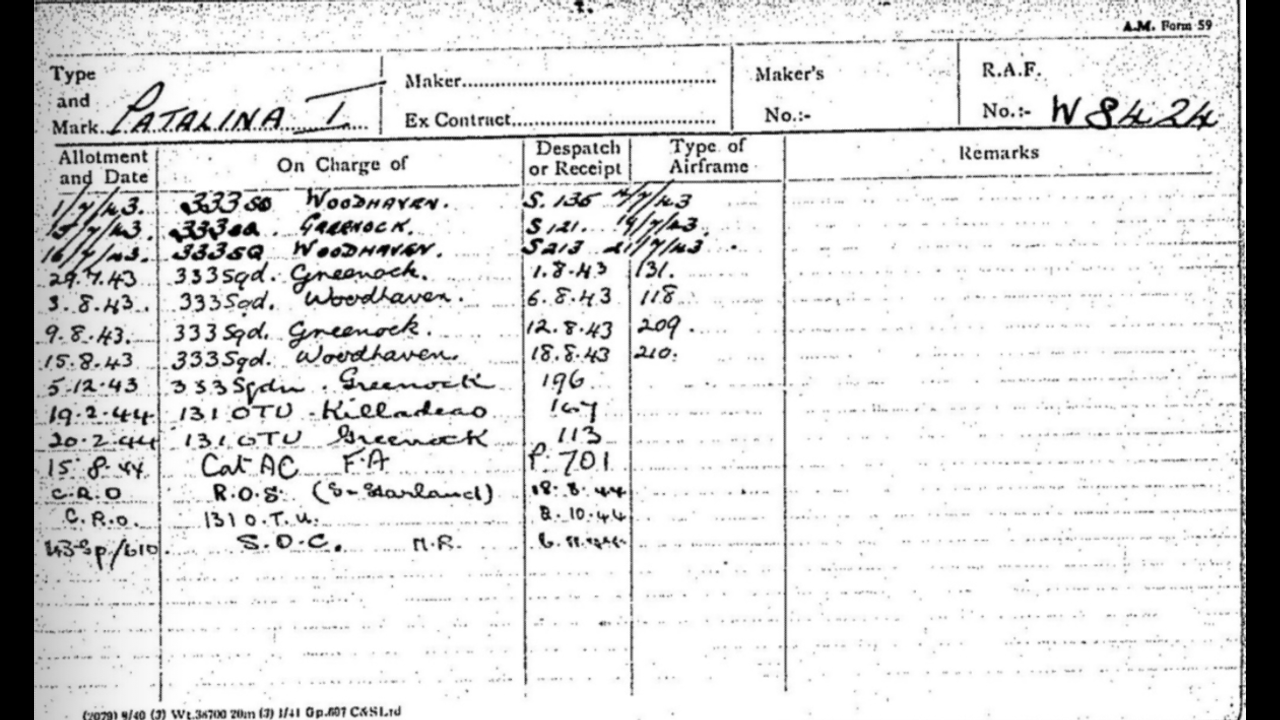 A.M. Form 59
Type and Mark PATALINA I Maker Ex Contract Maker's No.:- R.A.F. No.:- W8424
Allotment and Date On Charge of Despatch or Receipt Type of Airframe Remarks
1/7/43. 333 SQ WOODHAVEN. S. 135 /7/43
15/7/43. 333 SQ. GREENOCK. S 121. 19/7/43.
16/7/43. 333 SQ WOODHAVEN. S 213 21/7/43
29.7.43 333 Sqd. Greenock. 1.8.43 131.
3.8.43. 333 Sqd. Woodhaven. 6.8.43 118
9.8.43. 333 Sqd. Greenock. 12.8.43 209.
15.8.43 333 Sqd. Woodhaven. 18.8.43 210.
5.12.43 333 Sqdn. Greenock 196
19.2.44 131 OTU Killadeas 167
20.2.44 131 OTU Greenock 113
15.8.44 Cat AC FA P. 701
C.R.O R.O.S. 18.8.44
C.R.O. 131 O.T.U. 2.10.44
43 Gp/610. S.O.C. N.R.
(2079) 9/40 (3) Wt.36700 20m (3) 1/41 Gp.607 C&SLtd